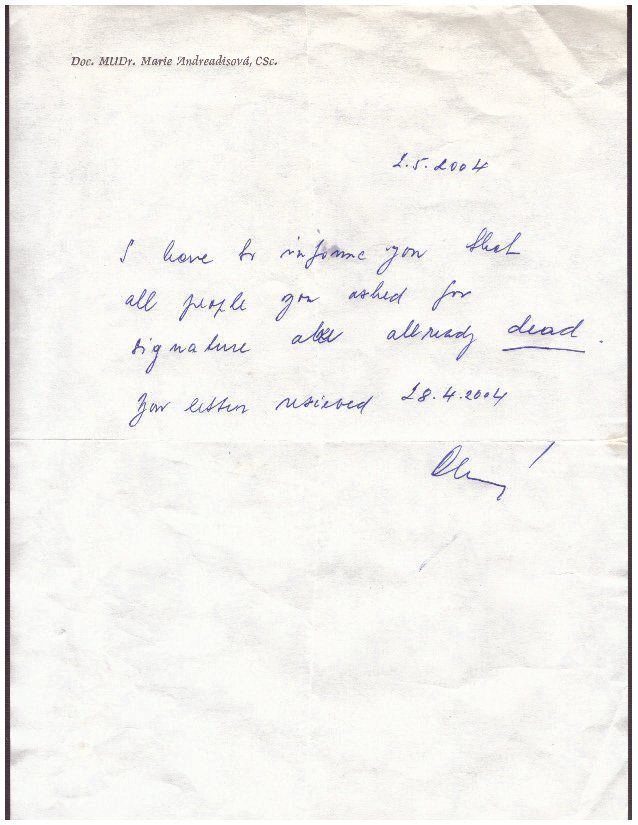 Doc. MUDr. Marie Andreadisová, CSc.
2.5.2004
I have to informe you that
all people you asked for
signature are allready dead.
Your letter recieved 28.4.2004